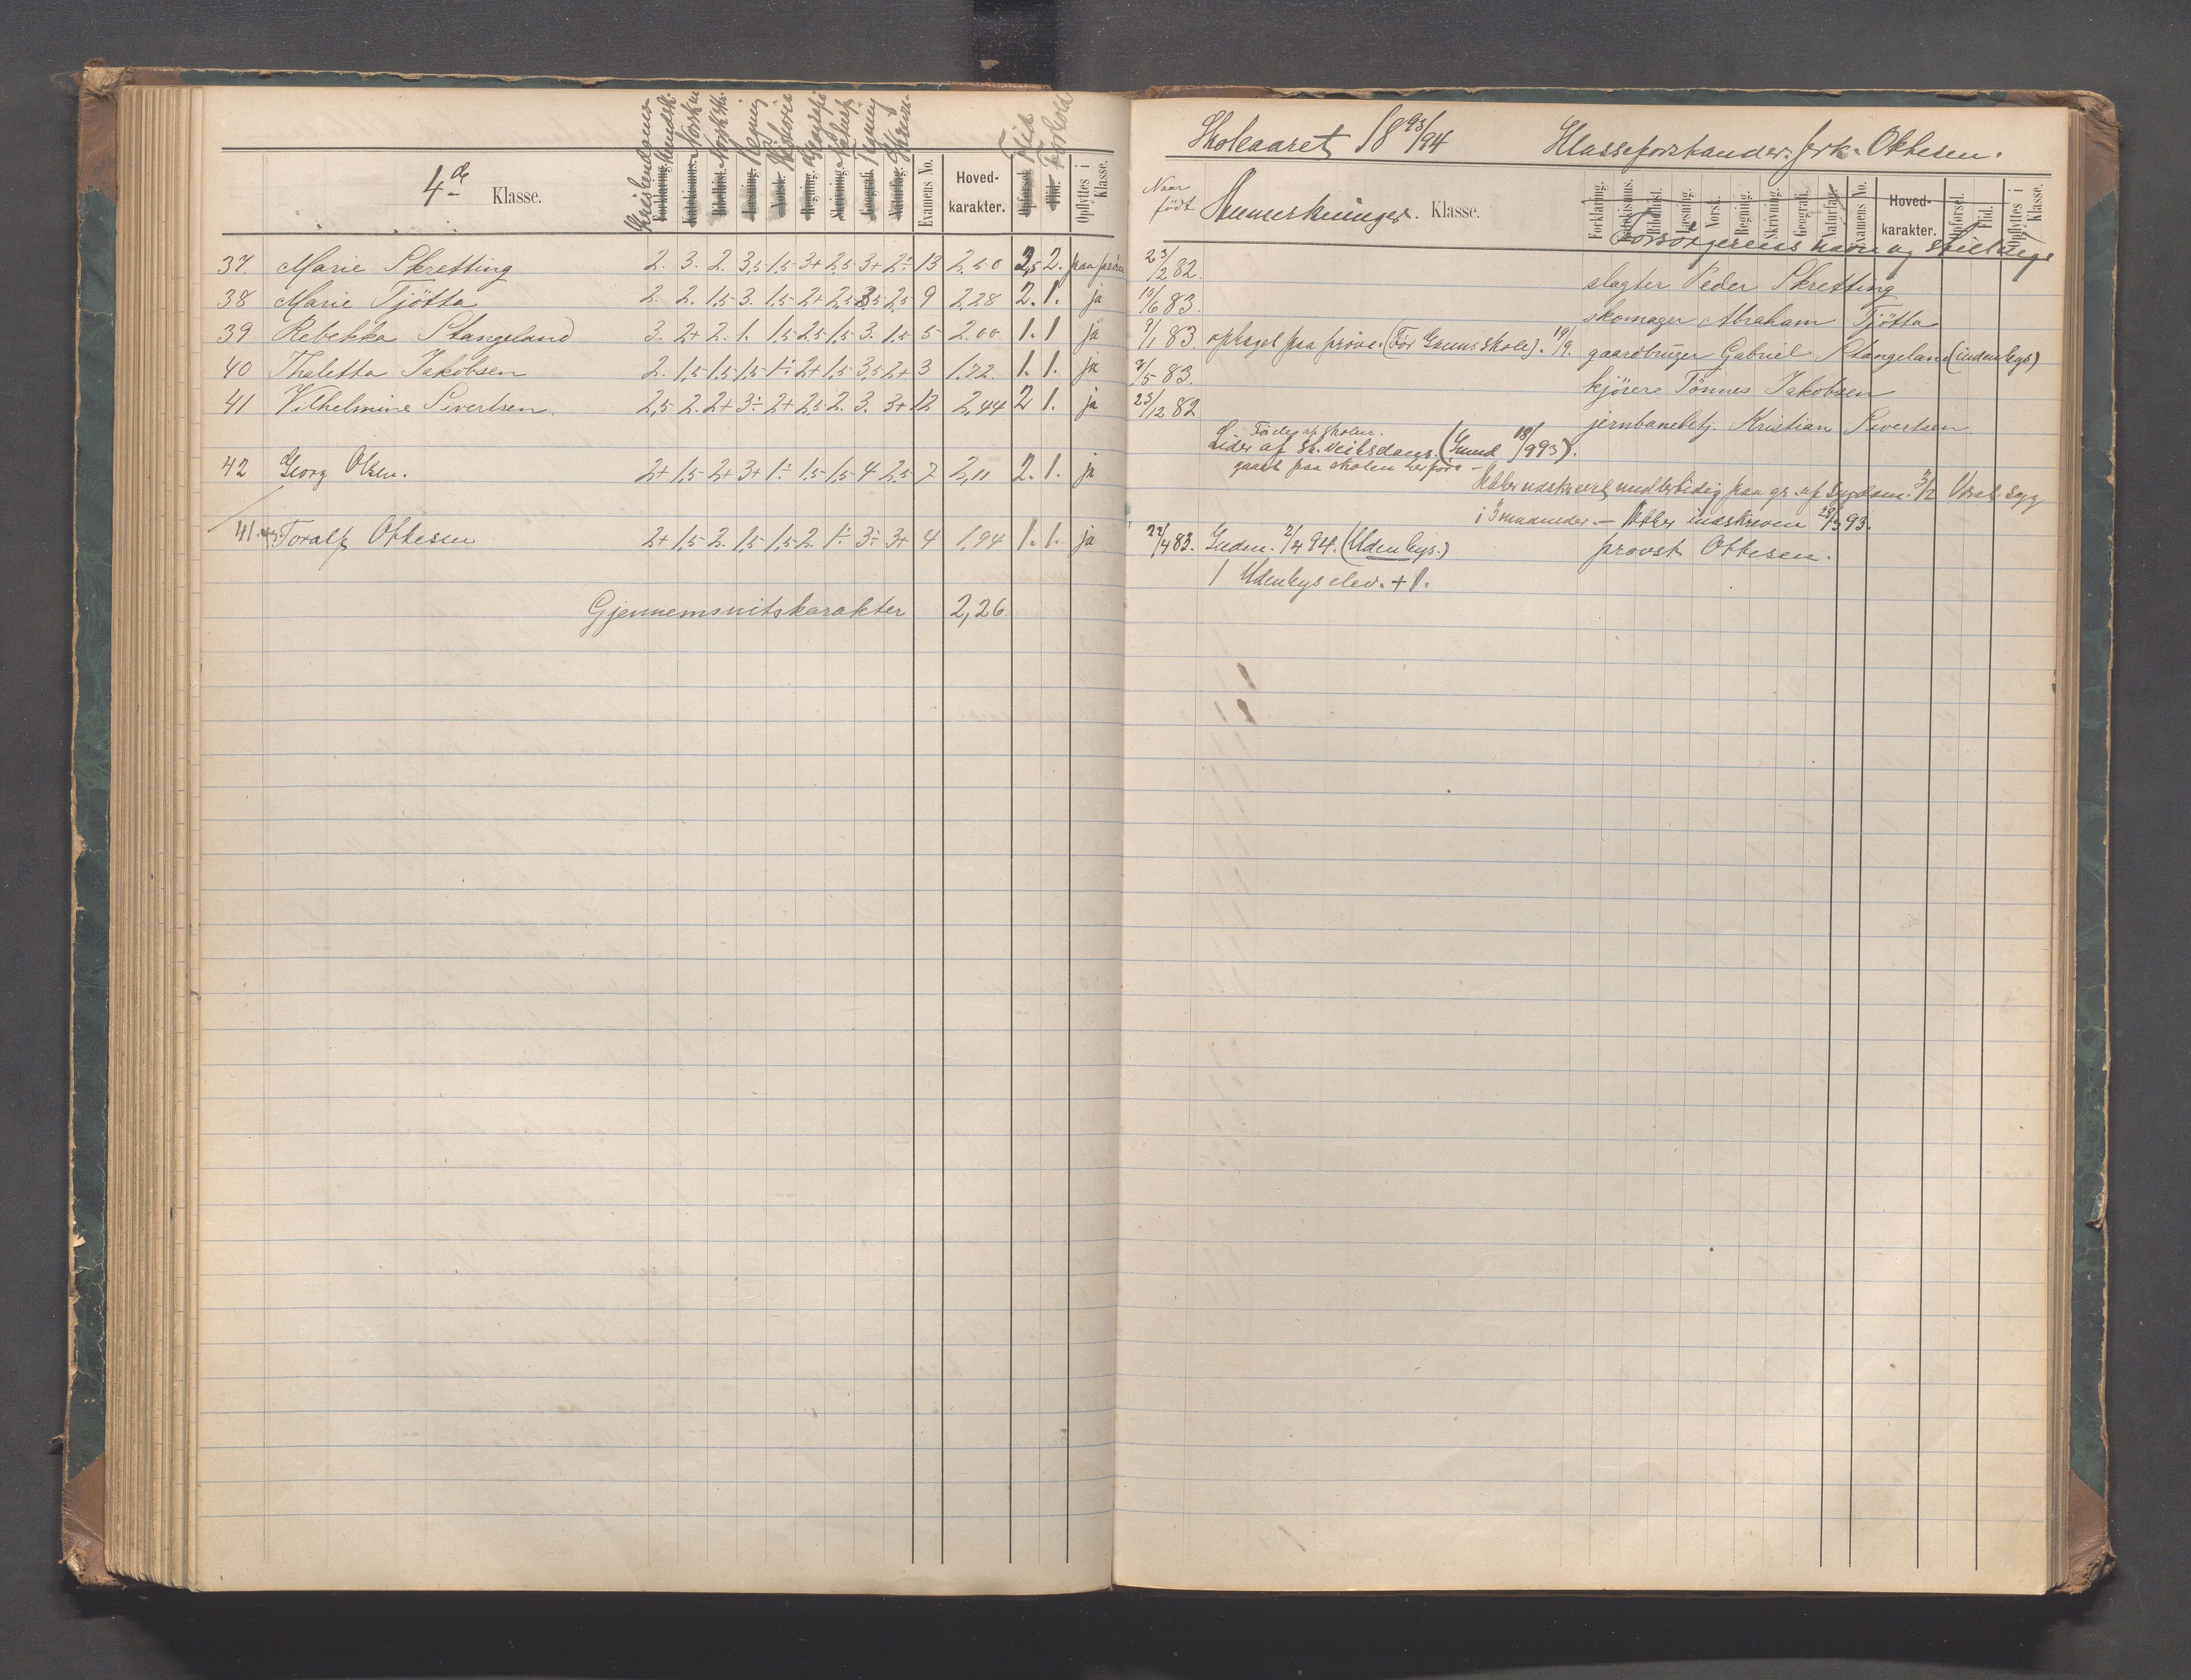 4de Klasse.
Kristendoms kundsk. Norsk m. Norsk skr. Regning Historie Geografi Naturf. Tegning Skrivn. Flid Forhold
Forklaring. Katekismus. Bibelhist. Læsning. Norsk. Regning. Skrivning. Geografi. Naturfag. Examens No. Hoved-karakter. Opførsel. Flid. Opflyttes i Klasse.
37 Marie Skretting 2. 3. 2. 3,5 1,5 3+ 2,5 3+ 2÷ 13 2,50 2,5 2. paa prøve
38 Marie Tjötta 2. 2. 1,5 3. 1,5 2+ 2,5 3,5 2,5 9 2,28 2. 1. ja
39 Rebekka Stangeland 3. 2+ 2. 1. 1,5 2,5 1,5 3. 1,5 5 2.00 1. 1 ja
40 Thaletta Jakobsen 2. 1,5 1,5 1,5 1÷ 2+ 1,5 3,5 2+ 3 1.72. 1. 1. ja
41 Vilhelmine Sivertsen. 2,5 2. 2+ 3÷ 2+ 2,5 2. 3. 3+ 12 2,44 2 1. ja
42 Georg Olsen. 2+ 1,5 2+ 3+ 1÷ 1,5 1,5 4 2,5 7 2,11 2. 1. ja
41. Toralf Ottesen 2+ 1,5 2. 1,5 1,5 2. 1÷ 3÷ 3+ 4 1,94 1. 1. ja
Gjennemsnitskarakter 2,26.
Skoleaaret 1893/94 Klasseforstander: frk. Ottesen.
Naar født Anmerkninger. Klasse.
Forklaring. Katekismus. Bibelhist. Læsning. Norsk. Regning. Skrivning. Geografi. Naturfag. Examens No. Hoved-karakter. Opførsel. Flid. Opflyttes i Klasse.
Forsørgerens navn og stilling.
23/2 82. slagter Peder Skretting
10/6 83. skomager Abraham Tjötta
9/1 83 optaget paa prøve. (Før Gruns skole). 19/9. gaardbruger Gabriel Stangeland (indenbys)
3/5 83. kjører Tönnes Jakobsen
23/12 82 jernbanebetj. Kristian Sivertsen
Lider af St. Veitsdans. (Grund 18/9 93).
gaaet paa skolen herfra -
Atter udskrevet midlertidig paa gr. af sygdom. 3/2
i 3 maaneder. - Atter indskreven 28/3 93.
22/4 83. Inden. 2/4 94. (Udenbys.) provst Ottesen.
1 Udenbys elev. + 1.